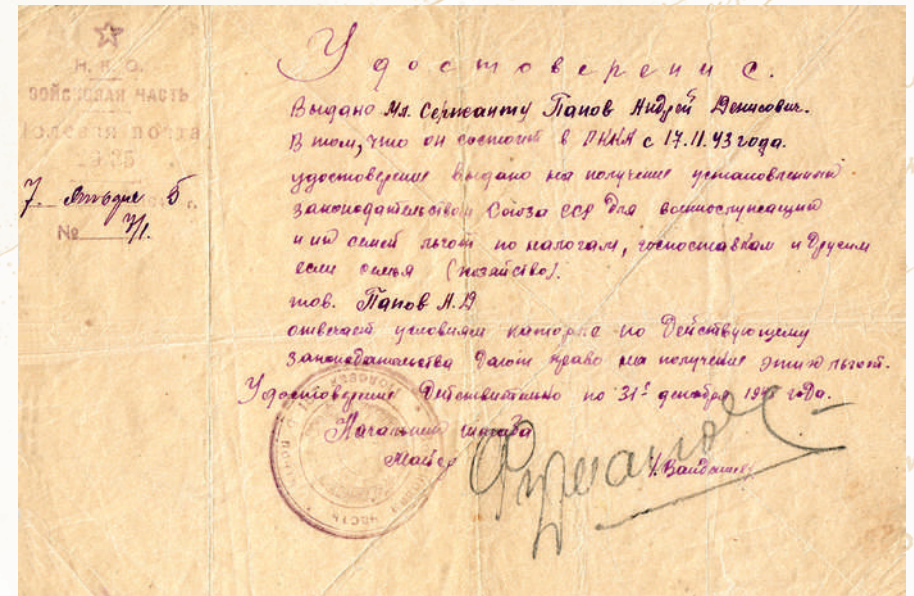 Н. К. О.
ВОЙСКОВАЯ ЧАСТЬ
ПОЛЕВАЯ ПОЧТА
7. 5 г.
№ 7/1.
Удостоверение.
Выдано Мл. Сержанту Папов Андрей Денисович.
В том, что он состоит в РККА с 17.11.43 года.
удостоверение выдано на получение установленных
законодательством Союза ССР для военнослужащих
и их семей льгот по налогам, госпоставкам и другим
если семья (хозяйство).
тов. Папов А.Д
отвечает условиям которые по действующему
законодательства дают право на получение этих льгот.
Удостоверение Действительно по 31е декабря года.
Начальник штаба
Майор